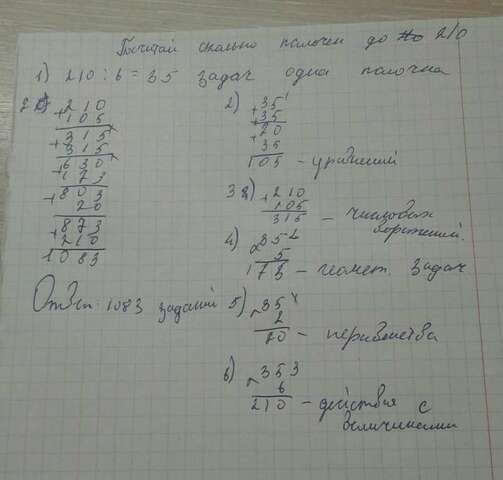 Посчитай сколько палочек до 210
1) 210 : 6 = 35 задач одна палочка
+210
105
+315
315
+630
173
+803
20
+873
210
1083
2) +35
+35
+20
35
105 - уравнений
3) +210
105
315 - числовых выражений.
4) 35
5
173 - геомет. задач
Ответ: 1083 заданий
5) 35
2
20 - неравенства
6) 35
6
210 - действия с
величинами